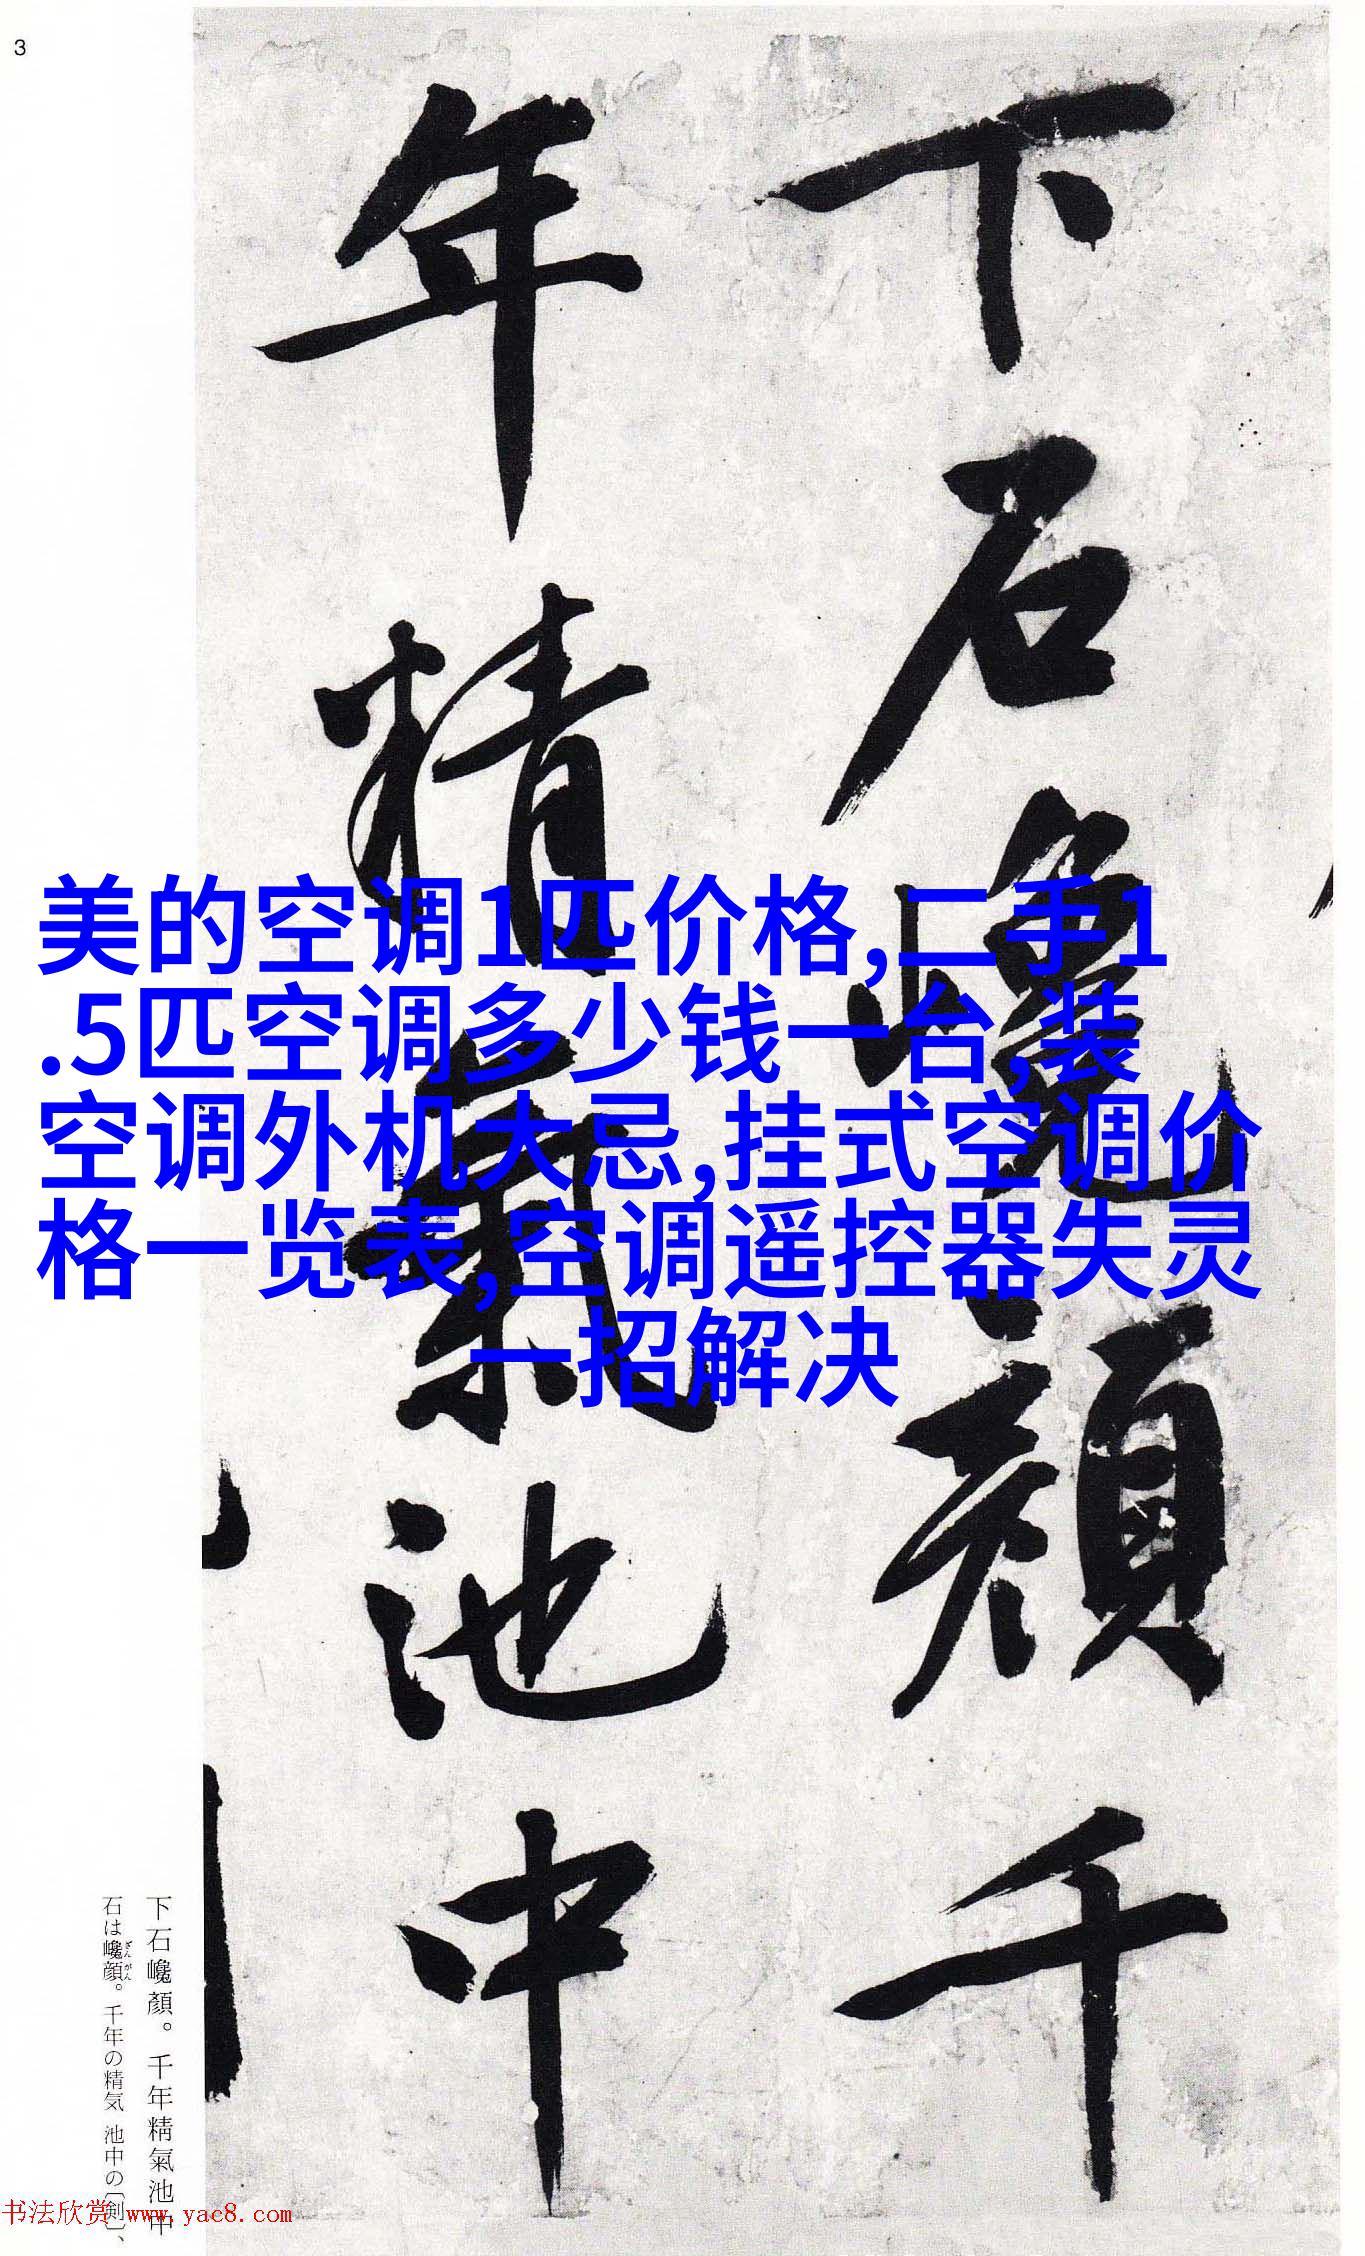 3
下石巉顏千
年精氣池中
美的空调1匹价格,二手1
.5匹空调多少钱一台,装
空调外机大忌,挂式空调价
格一览表,空调遥控器失灵
一招解决
下石巉顏。千年精氣池中
石は巉顔。千年の精気 池中の〔剣〕、
ざんがん
书法欣赏 www.yac8.com